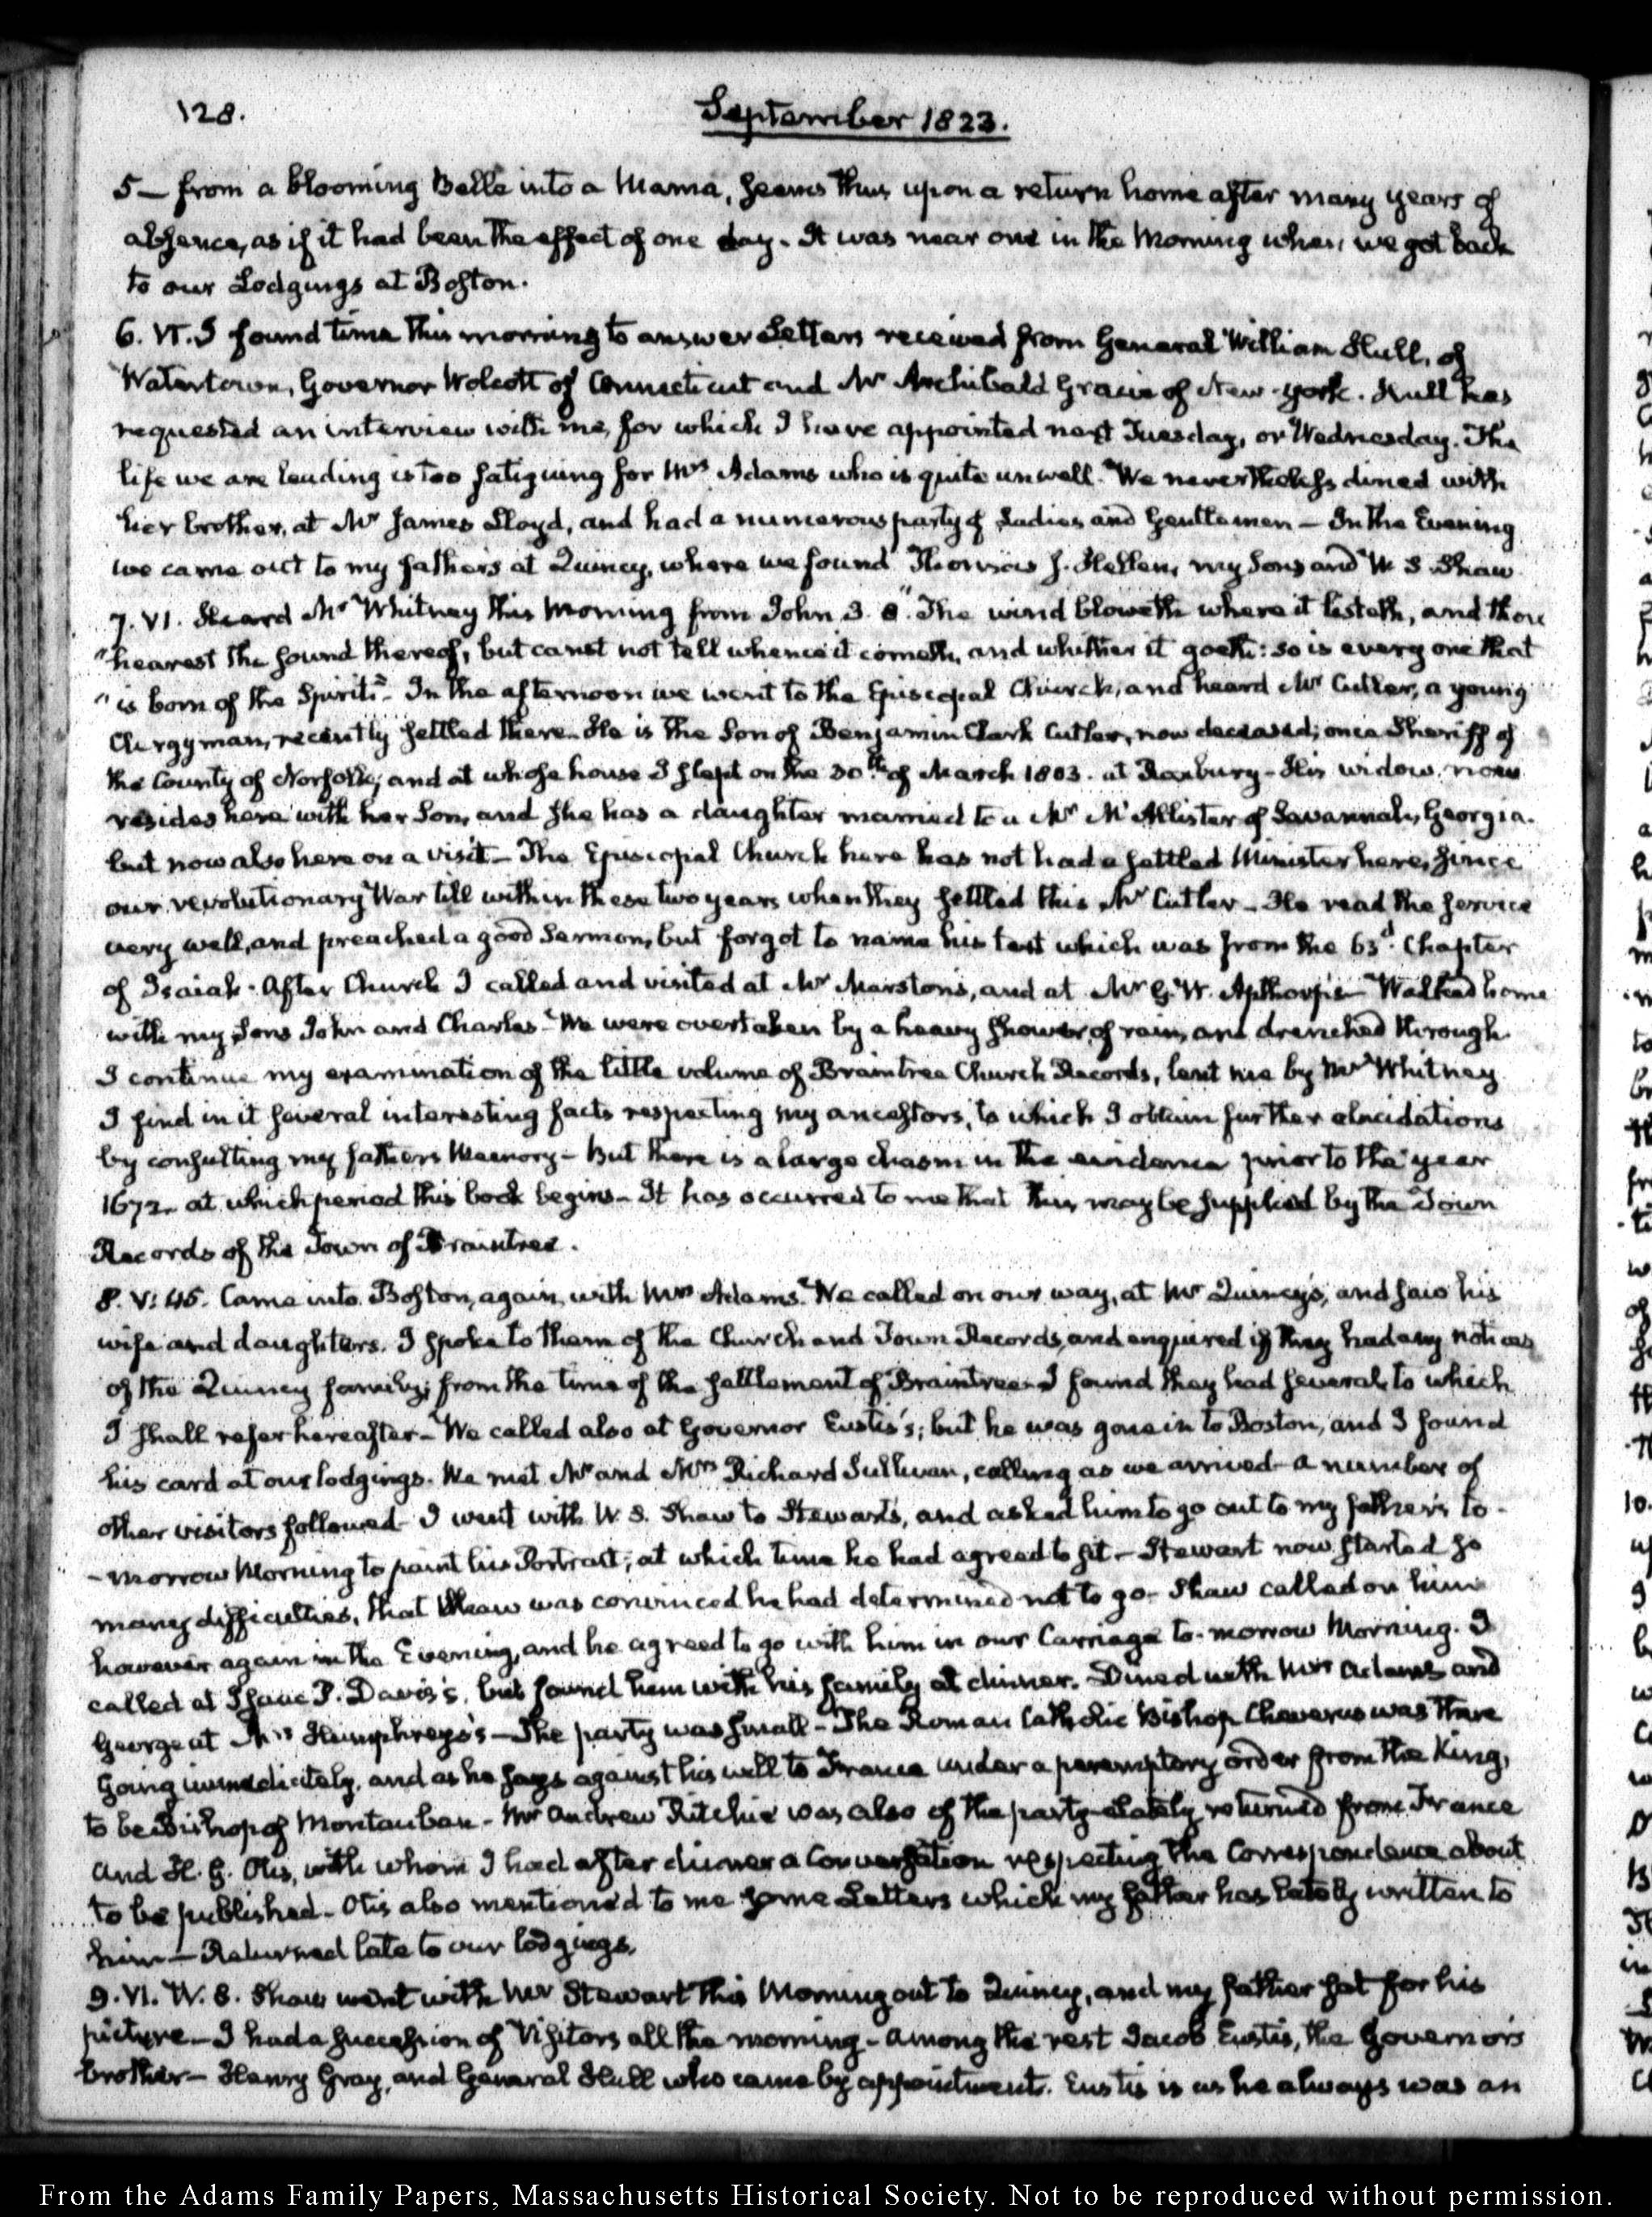 128.
September 1823.
5— from a blooming Belle into a Mama, seems thus upon a return home after many years of
absence, as if it had been the effect of one day. It was near one in the Morning when we got back
to our Lodgings at Boston.
6. VI. I found time this morning to answer Letters received from General William Hull, of
Watertown, Governor Wolcott of Connecticut and Mr Archibald Gracie of New-York. Hull has
requested an interview with me, for which I have appointed next Tuesday, or Wednesday. The
life we are leading is too fatiguing for Mrs Adams who is quite unwell. We nevertheless dined with
her brother, at Mr James Lloyd, and had a numerous party of Ladies and Gentlemen — In the Evening
we came out to my fathers at Quincy, where we found Thomas J. Hellen, my Sons and W. S. Shaw.
7. VI. Heard Mr Whitney this Morning from John 3. 8. "The wind bloweth where it listeth, and thou
"hearest the sound thereof, but canst not tell whence it cometh, and whither it goeth: so is every one that
"is born of the Spirit"- In the afternoon we went to the Episcopal Church, and heard Mr Cutler, a young
Clergyman, recently settled there. He is the Son of Benjamin Clark Cutler, now deceased; once Sheriff of
the County of Norfolk; and at whose house I slept on the 30th of March 1803. at Roxbury- His widow now
resides here with her Son, and she has a daughter married to a Mr McAllister of Savannah, Georgia.
but now also here on a visit- The Episcopal Church here has not had a settled Minister here, since
our revolutionary War till within these two years when they settled this Mr Cutler- He read the service
very well, and preached a good Sermon, but forgot to name his text which was from the 63d. Chapter
of Isaiah. After Church I called and visited at Mr Marston's, and at Mr G. W. Apthorp's- Walked home
with my Sons John and Charles- We were overtaken by a heavy shower of rain, and drenched through.
I continue my examination of the little volume of Braintree Church Records, lent me by Mr Whitney
I find in it several interesting facts respecting my ancestors, to which I obtain further elucidations
by consulting my fathers Memory- But there is a large chasm in the evidence prior to the year
1672. at which period this book begins- It has occurred to me that this may be supplied by the Town
Records of the Town of Braintree.
8. V: 45. Came into Boston, again with Mrs Adams. We called on our way, at Mr Quincy's, and saw his
wife and daughters. I spoke to them of the Church and Town Records, and enquired if they had any notices
of the Quincy family; from the time of the settlement of Braintree- I found they had several, to which
I shall refer hereafter- We called also at Governor Eustis's; but he was gone in to Boston, and I found
his card at our lodgings. We met Mr and Mrs Richard Sullivan, calling as we arrived- a number of
other visitors followed- I went with W. S. Shaw to Stewart's, and asked him to go out to my father's to-
-morrow Morning to paint his Portrait; at which time he had agreed to sit- Stewart now started so
many difficulties, that Shaw was convinced he had determined not to go- Shaw called on him
however again in the Evening, and he agreed to go with him in our Carriage to-morrow Morning. I
called at Isaac P. Davis's, but found him with his family at dinner. Dined with Mrs Adams and
George at Mrs Humphreys's- The party was small- The Roman Catholic Bishop Cheverus was there
Going immediately, and as he says against his will to France under a peremptory order from the King,
to be Bishop of Montauban- Mr Andrew Ritchie was also of the party- lately returned from France
and H. G. Otis, with whom I had after dinner a Conversation respecting the Correspondence about
to be published- Otis also mentioned to me some Letters which my father has lately written to
him- Returned late to our lodgings.
9. VI. W. S. Shaw went with Mr Stewart this Morning out to Quincy, and my father sat for his
picture- I had a succession of Visitors all the morning- among the rest Jacob Eustis, the Governor's
brother- Henry Gray, and General Hull who came by appointment. Eustis is as he always was an
From the Adams Family Papers, Massachusetts Historical Society. Not to be reproduced without permission.